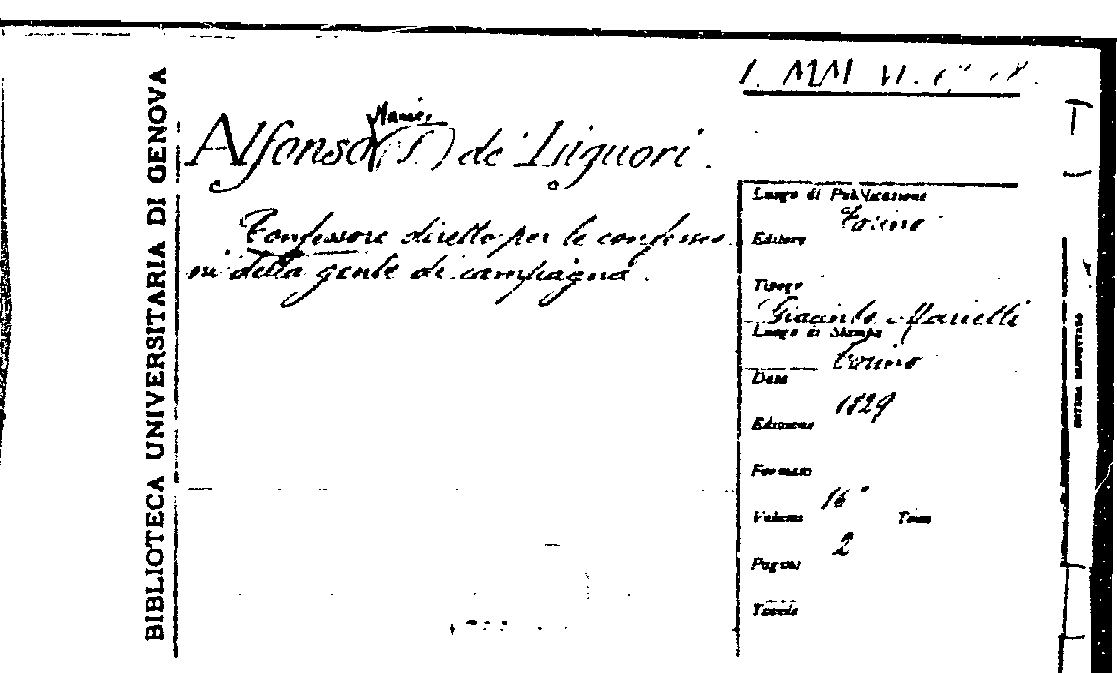 BIBLIOTECA UNIVERSITARIA DI GENOVA
Alfonso Maria (S.) de' Liguori.
Confessore diretto per le confessio
ni della gente di campagna.
Luogo di Pubblicazione
Torino
Editore
Tipogr
Giacinto Marietti
Luogo di Stampa
Torino
Data
1829
Edizione
Formato
16°
Volume Tomo
2
Pagine
Tavole